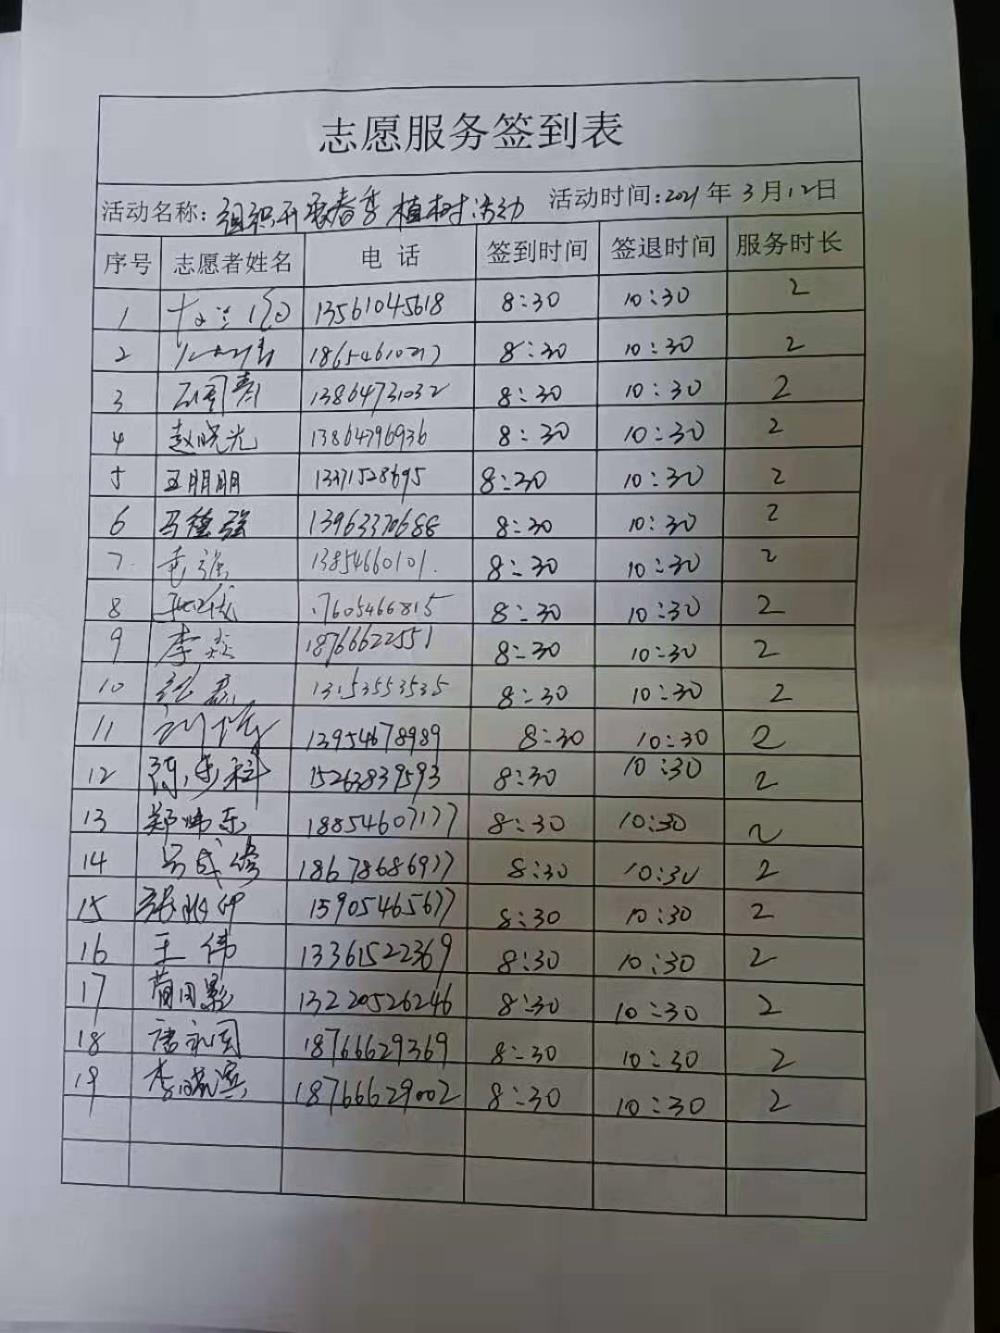 志愿服务签到表
活动名称: 组织开展春季植树活动 活动时间:2021年3月12日
序号 志愿者姓名 电话 签到时间 签退时间 服务时长
1 13561045618 8:30 10:30 2
2 8:30 10:30 2
3 13864731032 8:30 10:30 2
4 赵晓光 13864796936 8:30 10:30 2
5 王朋朋 8:30 10:30 2
6 马德强 13963370688 8:30 10:30 2
7 13854660101 8:30 10:30 2
8 8:30 10:30 2
9 李 18766622551 8:30 10:30 2
10 张磊 13153553535 8:30 10:30 2
11 13954678989 8:30 10:30 2
12 15263839593 8:30 10:30 2
13 郑炜东 18854607177 8:30 10:30 2
14 18678686977 8:30 10:30 2
15 15905465677 8:30 10:30 2
16 王伟 13361522369 8:30 10:30 2
17 13220526246 8:30 10:30 2
18 唐永国 18766629369 8:30 10:30 2
19 李晓滨 18766629002 8:30 10:30 2